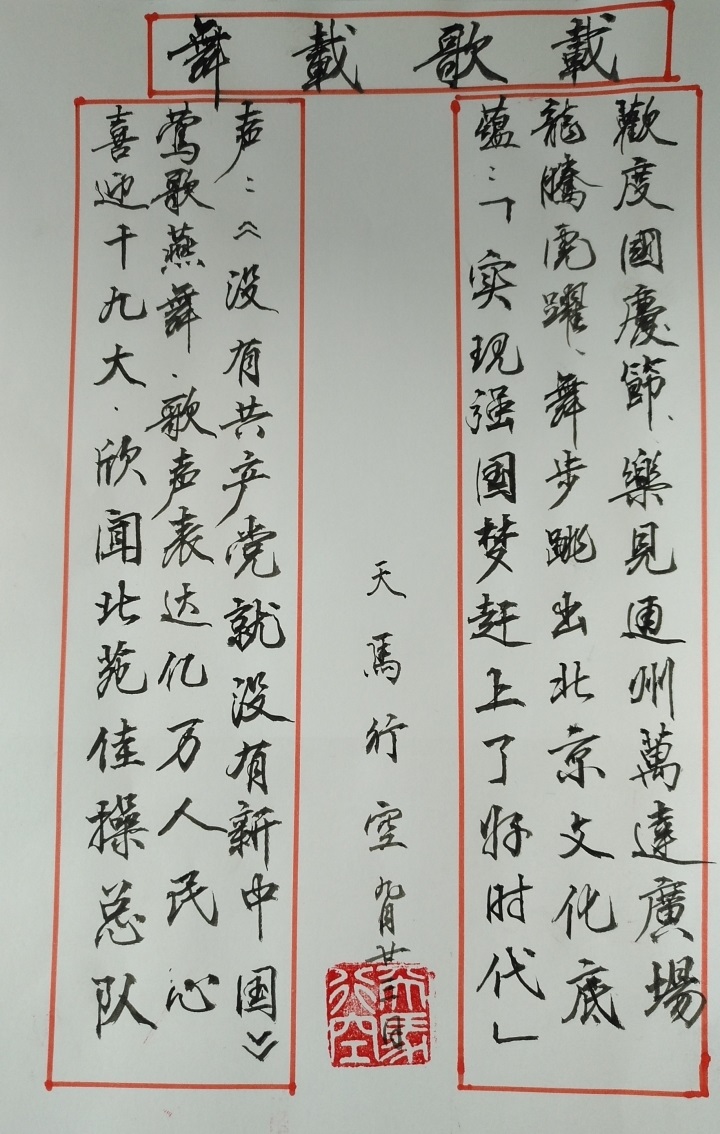 載歌載舞
歡度國慶節、樂見通州萬達廣場
龍騰虎躍、舞步跳出北京文化底
蘊：「实现强国梦赶上了好时代」
喜迎十九大、欣聞北苑佳操总队
莺歌燕舞、歌声表达亿万人民心
声：《没有共产党就没有新中国》
天馬行空 九月廿
天馬行空